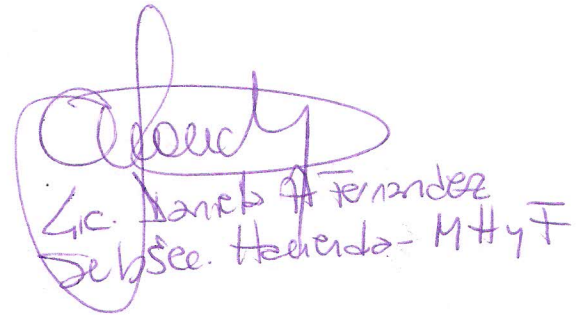 Lic. Daniela A Fernandez
SubSec. Hacienda - MHyF